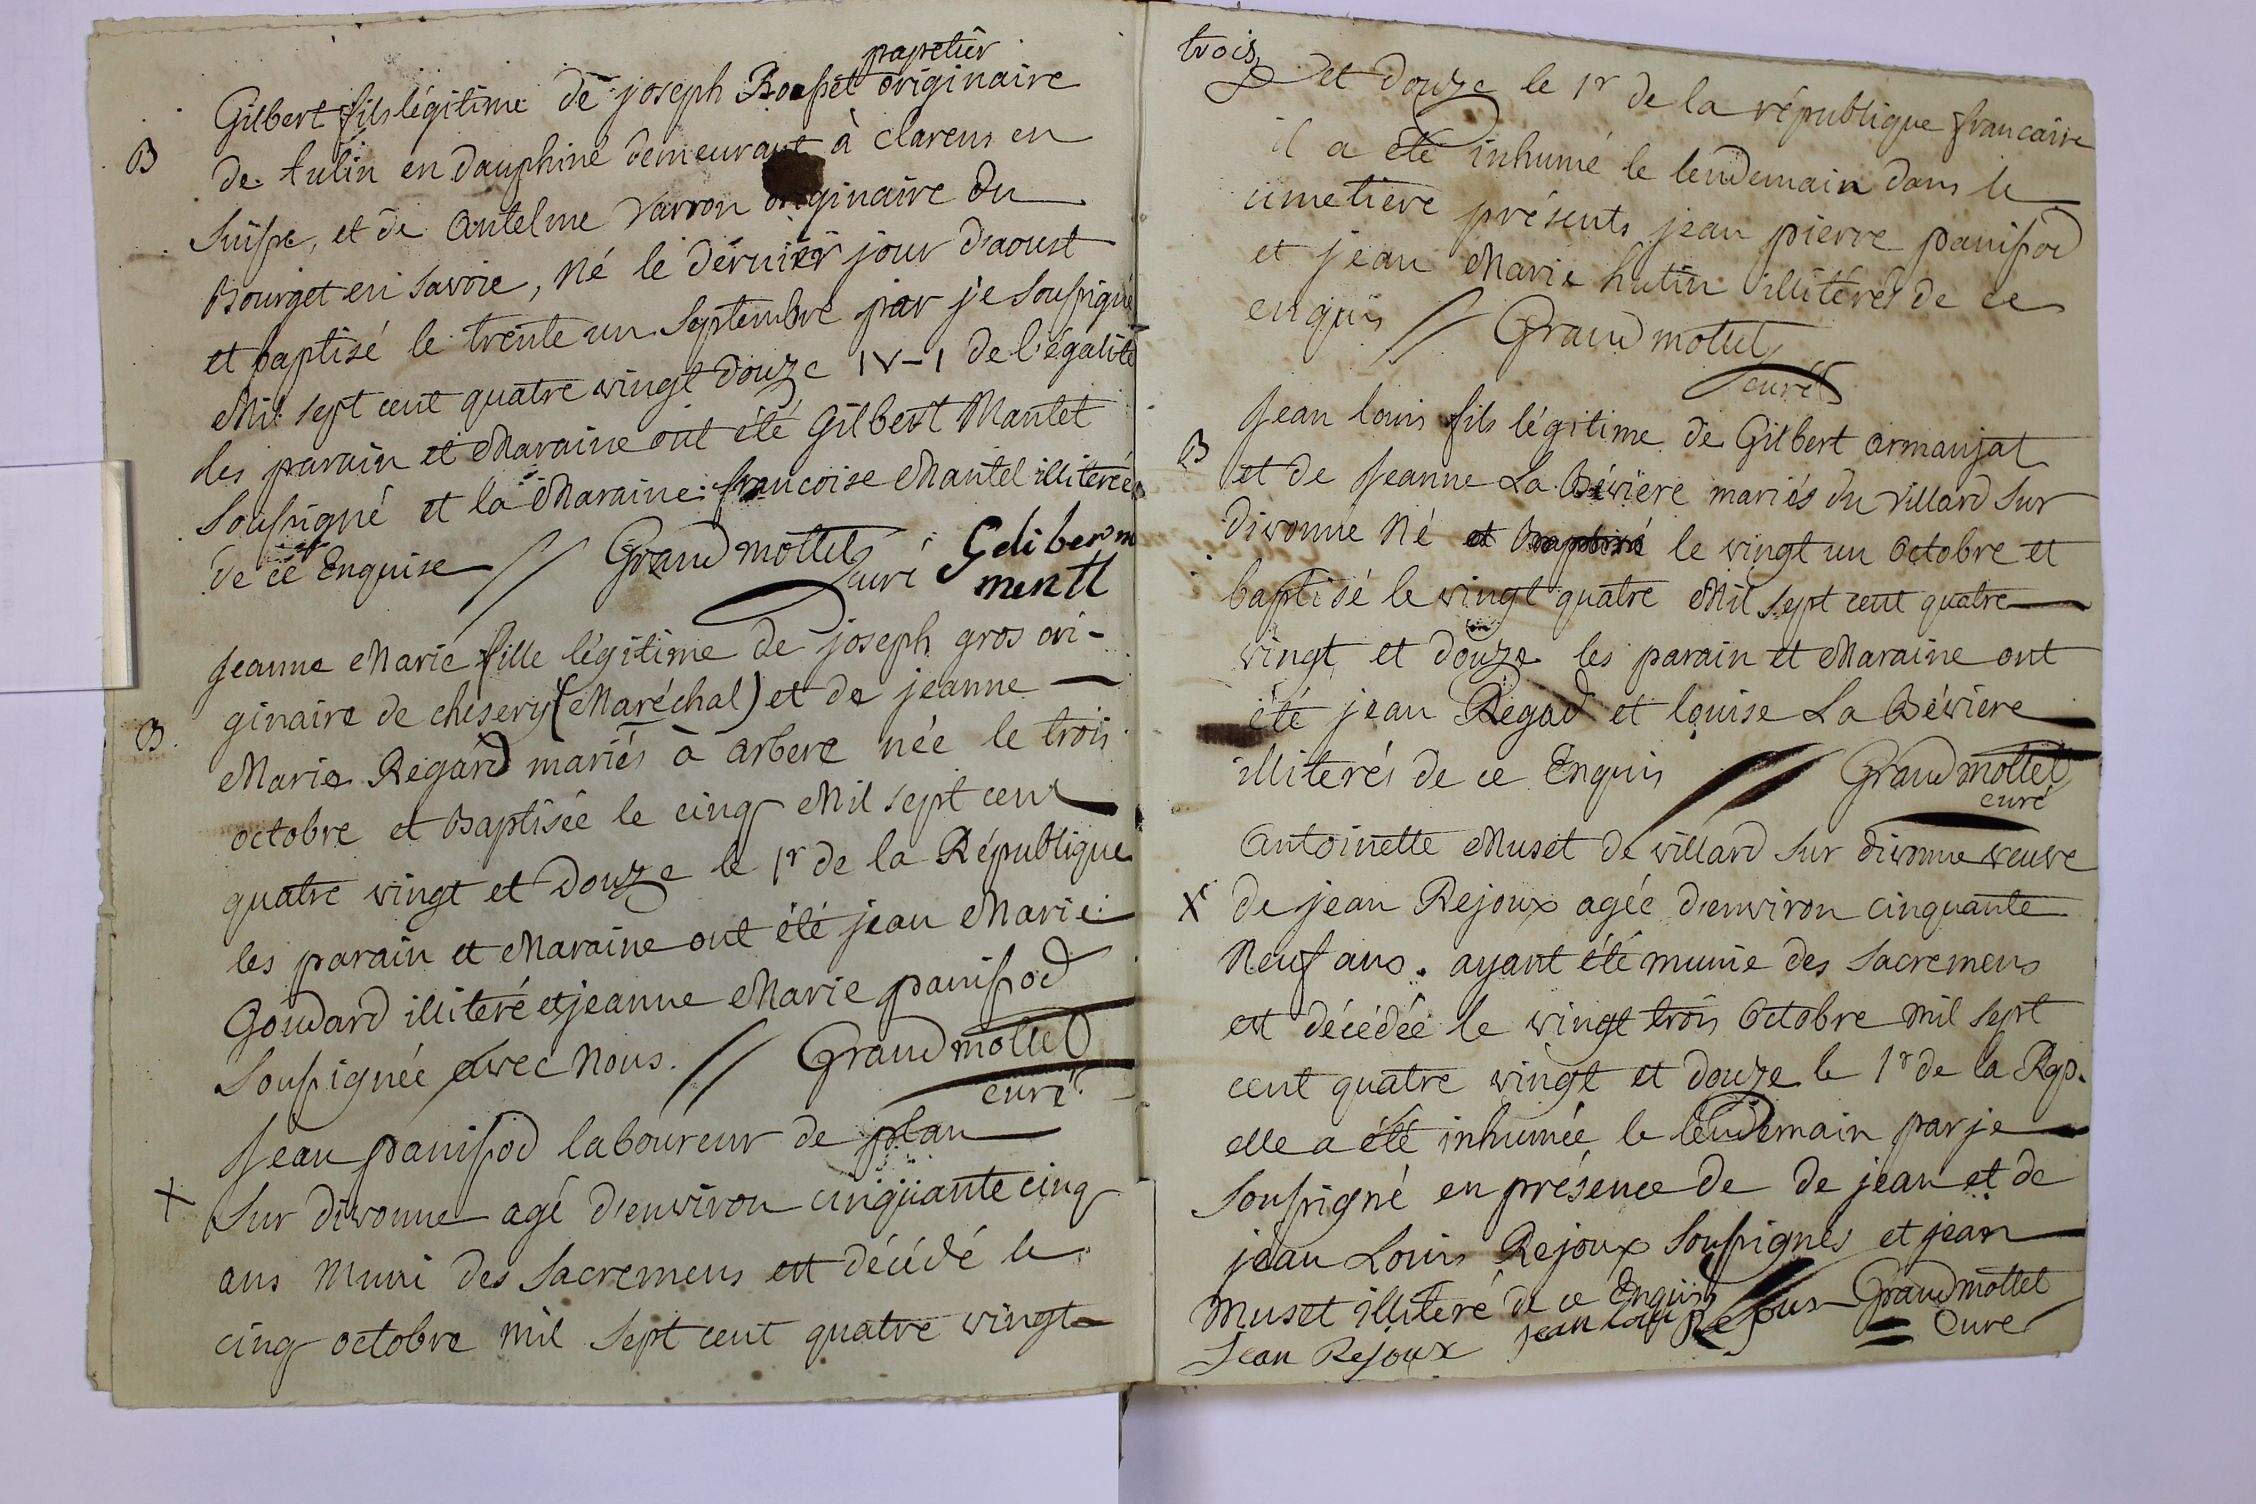 papetiér
Gilbert fils légitime de joseph Bousset originaire
B
de tulin en dauphiné demeurant à clarens en
suisse, et de antelme varron originaire du
Bourget en savoie, Né le dérnier jour d'aoust
et baptisé le trente un septembre par je soussigné
Mil sept cent quatre vingt douze IV-1 de l'égalité
les parain et Maraine ont été Gilbert Mantet
soussigné et la Maraine françoise Mantel illiterée
de ce Enquise // Grandmottet curé Geliber m
mentt
Jeanne Marie fille légitime de joseph gros ori-
ginaire de chésery (Maréchal) et de jeanne
B
Marie Regard mariés à arbere née le trois
octobre et Baptisée le cinq Mil sept cent
quatre vingt et douze le 1r de la République
les parain et Maraine ont été jean Marie
Goudard illiteré et jeanne Marie panissod
soussignée avec Nous. // Grandmottet
curé
Jean panissod laboureur de plan
X
sur divonne agé d'environ cinquante cinq
ans Muni des sacremens est décédé le
cinq octobre mil sept cent quatre vingt
trois
et douze le 1r de la république francaise
il a été inhumé le lendemain dans le
cimetiére présents jean pierre panissod
et jean Marie hutin illiterés de ce
enquis // Grandmottet
curé
Jean louis fils légitime de Gilbert armanjat
B
et de Jeanne La Béviére mariés du villard sur
divonne Né et Baptisé le vingt un Octobre et
baptisé le vingt quatre Mil sept cent quatre
vingt et douze les parain et Maraine ont
été jean Regad et louise La Béviere
illiterés de ce Enquis // Grandmottet
curé
Antoinette Muset de villard sur divonne veuve
X
de jean Rejoux agée d'environ cinquante
Neuf ans. ayant été munie des sacremens
est décédée le vingt trois Octobre mil sept
cent quatre vingt et douze le 1r de la Rep.
elle a été inhumée le lendemain par je
soussigné en présence de de jean et de
jean Louis Rejoux soussignés et jean
Muset illiteré de ce Enquis // Grandmottet
Curé
jean Rejoux jean loui Rejoux